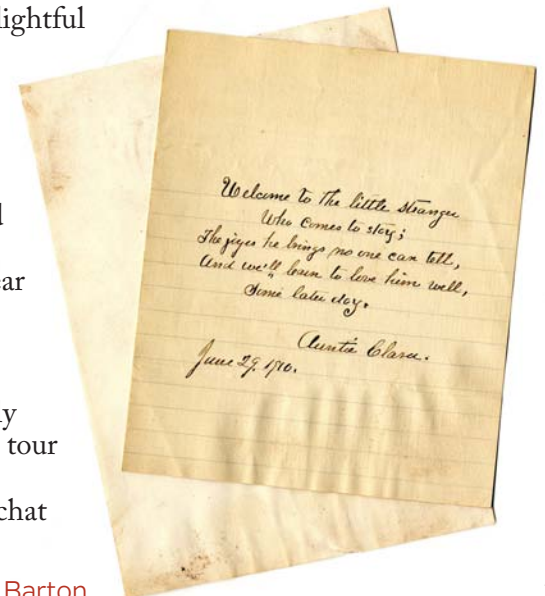 lightful
d
ear
ly
tour
chat
Barton
Welcome to the little stranger
Who comes to stay;
The joyes he brings no one can tell,
And we'll learn to love him well,
Some later day.
Auntie Clara.
June 29. 1910.